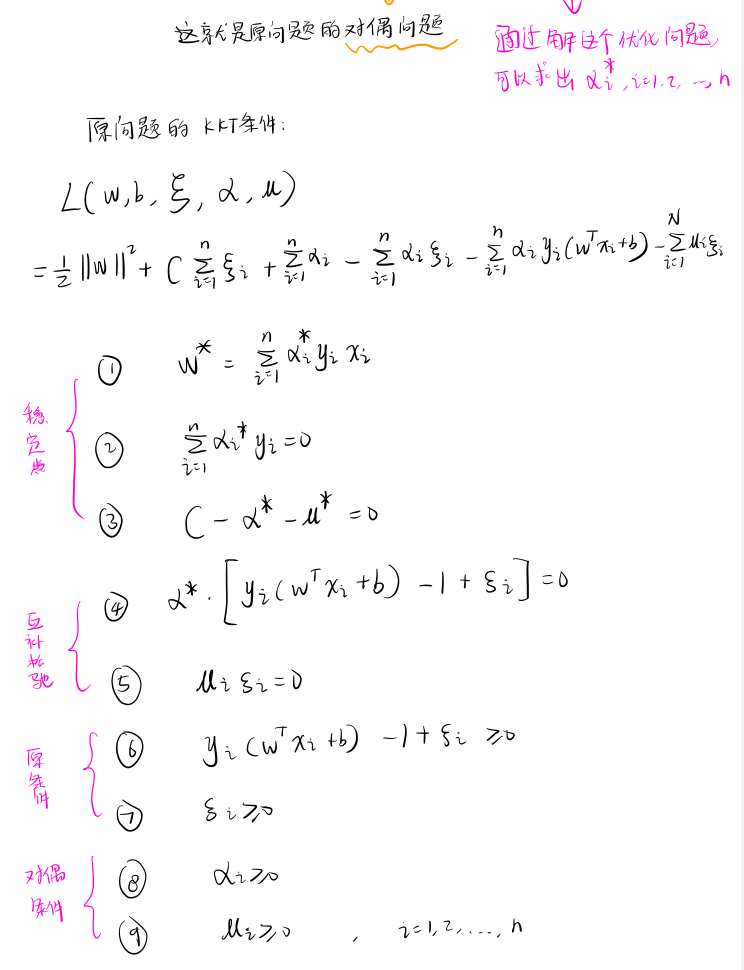 这就是原问题的对偶问题
通过解这个优化问题,
可以求出 αᵢ*, i=1,2,…,n
原问题的 KKT条件:
L(w,b,ξ,α,μ)
= 1/2 ||w||² + C ∑ⁿᵢ₌₁ ξᵢ + ∑ⁿᵢ₌₁ αᵢ - ∑ⁿᵢ₌₁ αᵢξᵢ - ∑ⁿᵢ₌₁ αᵢyᵢ(wᵀxᵢ+b) - ∑ᴺᵢ₌₁ μᵢξᵢ
稳定点
① w* = ∑ⁿᵢ₌₁ αᵢ* yᵢ xᵢ
② ∑ⁿᵢ₌₁ αᵢ* yᵢ = 0
③ C - α* - μ* = 0
互补松弛
④ α* · [yᵢ(wᵀxᵢ+b) - 1 + ξᵢ] = 0
⑤ μᵢ ξᵢ = 0
原条件
⑥ yᵢ(wᵀxᵢ+b) - 1 + ξᵢ ≥ 0
⑦ ξᵢ ≥ 0
对偶条件
⑧ αᵢ ≥ 0
⑨ μᵢ ≥ 0 , i=1,2,…,n